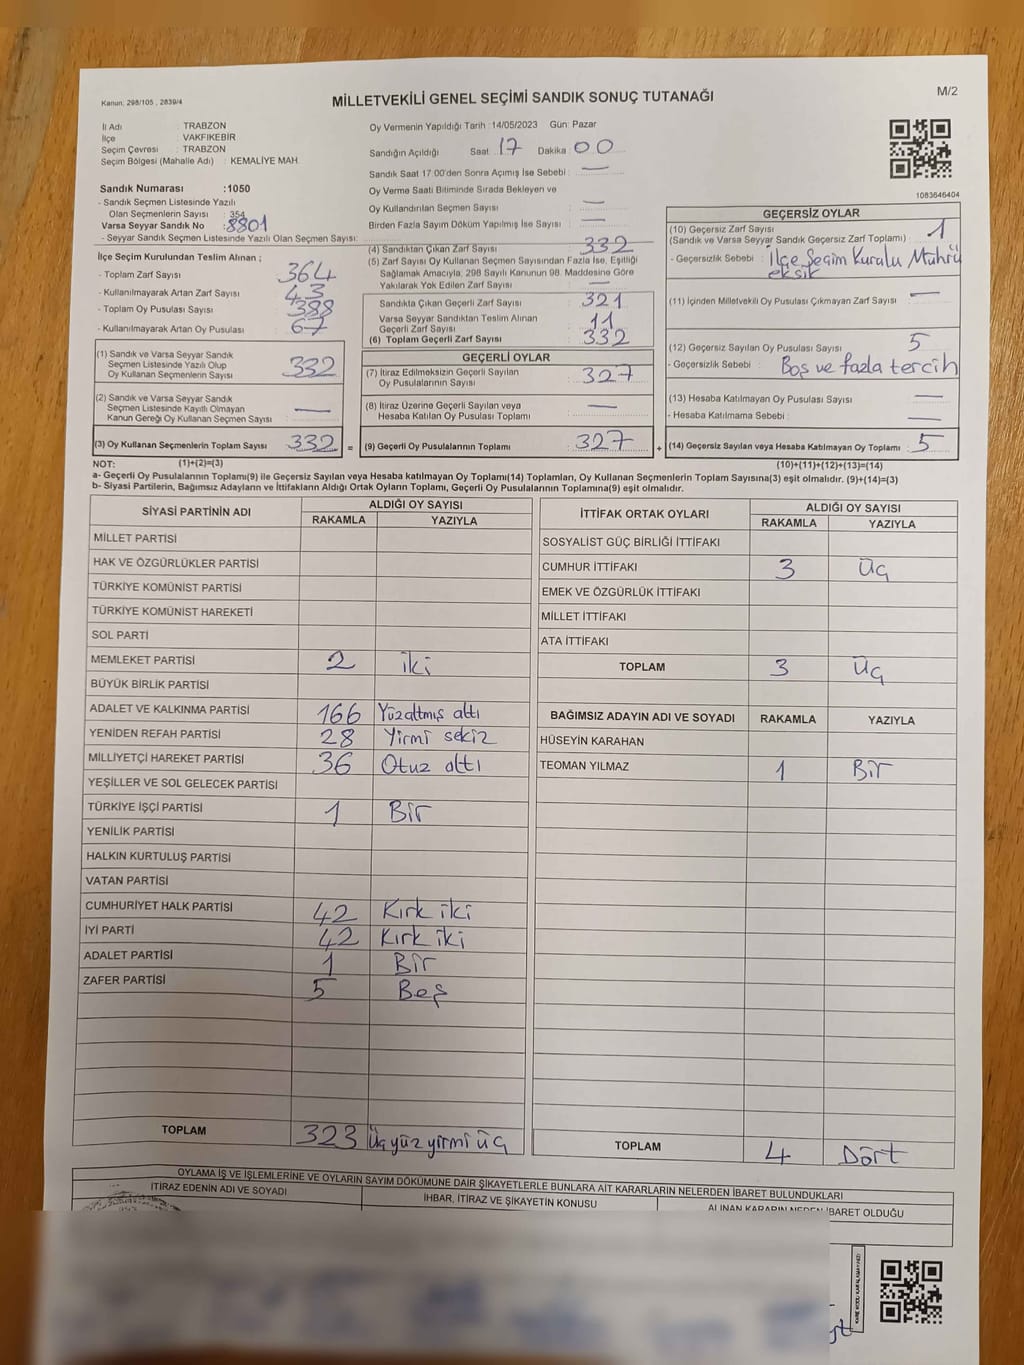 Kanun: 298/105 , 2839/4
MİLLETVEKİLİ GENEL SEÇİMİ SANDIK SONUÇ TUTANAĞI
M/2
İl Adı : TRABZON
İlçe : VAKFIKEBİR
Seçim Çevresi : TRABZON
Seçim Bölgesi (Mahalle Adı) : KEMALİYE MAH.
Sandık Numarası :1050
- Sandık Seçmen Listesinde Yazılı
Olan Seçmenlerin Sayısı : 354
Varsa Seyyar Sandık No :8801
- Seyyar Sandık Seçmen Listesinde Yazılı Olan Seçmen Sayısı:
İlçe Seçim Kurulundan Teslim Alınan ;
- Toplam Zarf Sayısı : 364
- Kullanılmayarak Artan Zarf Sayısı : 43
- Toplam Oy Pusulası Sayısı : 388
- Kullanılmayarak Artan Oy Pusulası : 67
(1) Sandık ve Varsa Seyyar Sandık
Seçmen Listesinde Yazılı Olup
Oy Kullanan Seçmenlerin Sayısı : 332
(2) Sandık ve Varsa Seyyar Sandık
Seçmen Listesinde Kayıtlı Olmayan
Kanun Gereği Oy Kullanan Seçmen Sayısı : —
(3) Oy Kullanan Seçmenlerin Toplam Sayısı : 332 =
Oy Vermenin Yapıldığı Tarih :14/05/2023 Gün: Pazar
Sandığın Açıldığı Saat : 17 Dakika : 00
Sandık Saat 17:00'den Sonra Açımış İse Sebebi : —
Oy Verme Saati Bitiminde Sırada Bekleyen ve
Oy Kullandırılan Seçmen Sayısı : —
Birden Fazla Sayım Döküm Yapılmış İse Sayısı : —
(4) Sandıktan Çıkan Zarf Sayısı : 332
(5) Zarf Sayısı Oy Kullanan Seçmen Sayısından Fazla İse, Eşitliği
Sağlamak Amacıyla, 298 Sayılı Kanunun 98. Maddesine Göre
Yakılarak Yok Edilen Zarf Sayısı : —
Sandıkta Çıkan Geçerli Zarf Sayısı : 321
Varsa Seyyar Sandıktan Teslim Alınan
Geçerli Zarf Sayısı : 11
(6) Toplam Geçerli Zarf Sayısı : 332
GEÇERLİ OYLAR
(7) İtiraz Edilmeksizin Geçerli Sayılan
Oy Pusulalarının Sayısı : 327
(8) İtiraz Üzerine Geçerli Sayılan veya
Hesaba Katılan Oy Pusulası Toplamı : —
(9) Geçerli Oy Pusulalarının Toplamı : 327 +
1083646404
GEÇERSİZ OYLAR
(10) Geçersiz Zarf Sayısı
(Sandık ve Varsa Seyyar Sandık Geçersiz Zarf Toplamı) : 1
- Geçersizlik Sebebi : İlçe Seçim Kurulu Mührü
eksik
(11) İçinden Milletvekili Oy Pusulası Çıkmayan Zarf Sayısı : —
(12) Geçersiz Sayılan Oy Pusulası Sayısı : 5
- Geçersizlik Sebebi : Boş ve fazla tercih
(13) Hesaba Katılmayan Oy Pusulası Sayısı : —
- Hesaba Katılmama Sebebi : —
(14) Geçersiz Sayılan veya Hesaba Katılmayan Oy Toplamı : 5
NOT: (1)+(2)=(3) (10)+(11)+(12)+(13)=(14)
a- Geçerli Oy Pusulalarının Toplamı(9) ile Geçersiz Sayılan veya Hesaba katılmayan Oy Toplamı(14) Toplamları, Oy Kullanan Seçmenlerin Toplam Sayısına(3) eşit olmalıdır. (9)+(14)=(3)
b- Siyasi Partilerin, Bağımsız Adayların ve İttifakların Aldığı Ortak Oyların Toplamı, Geçerli Oy Pusulalarının Toplamına(9) eşit olmalıdır.
SİYASİ PARTİNİN ADI ALDIĞI OY SAYISI
RAKAMLA YAZIYLA
MİLLET PARTİSİ
HAK VE ÖZGÜRLÜKLER PARTİSİ
TÜRKİYE KOMÜNİST PARTİSİ
TÜRKİYE KOMÜNİST HAREKETİ
SOL PARTİ
MEMLEKET PARTİSİ 2 iki
BÜYÜK BİRLİK PARTİSİ
ADALET VE KALKINMA PARTİSİ 166 Yüzaltmış altı
YENİDEN REFAH PARTİSİ 28 Yirmi sekiz
MİLLİYETÇİ HAREKET PARTİSİ 36 Otuz altı
YEŞİLLER VE SOL GELECEK PARTİSİ
TÜRKİYE İŞÇİ PARTİSİ 1 Bir
YENİLİK PARTİSİ
HALKIN KURTULUŞ PARTİSİ
VATAN PARTİSİ
CUMHURİYET HALK PARTİSİ 42 Kırk iki
İYİ PARTİ 42 Kırk iki
ADALET PARTİSİ 1 Bir
ZAFER PARTİSİ 5 Beş
TOPLAM 323 Üçyüz yirmi üç
İTTİFAK ORTAK OYLARI ALDIĞI OY SAYISI
RAKAMLA YAZIYLA
SOSYALİST GÜÇ BİRLİĞİ İTTİFAKI
CUMHUR İTTİFAKI 3 Üç
EMEK VE ÖZGÜRLÜK İTTİFAKI
MİLLET İTTİFAKI
ATA İTTİFAKI
TOPLAM 3 Üç
BAĞIMSIZ ADAYIN ADI VE SOYADI RAKAMLA YAZIYLA
HÜSEYİN KARAHAN
TEOMAN YILMAZ 1 Bir
TOPLAM 4 Dört
OYLAMA İŞ VE İŞLEMLERİNE VE OYLARIN SAYIM DÖKÜMÜNE DAİR ŞİKAYETLERLE BUNLARA AİT KARARLARIN NELERDEN İBARET BULUNDUKLARI
İTİRAZ EDENİN ADI VE SOYADI İHBAR, İTİRAZ VE ŞİKAYETİN KONUSU ALINAN KARARIN NEDEN İBARET OLDUĞU